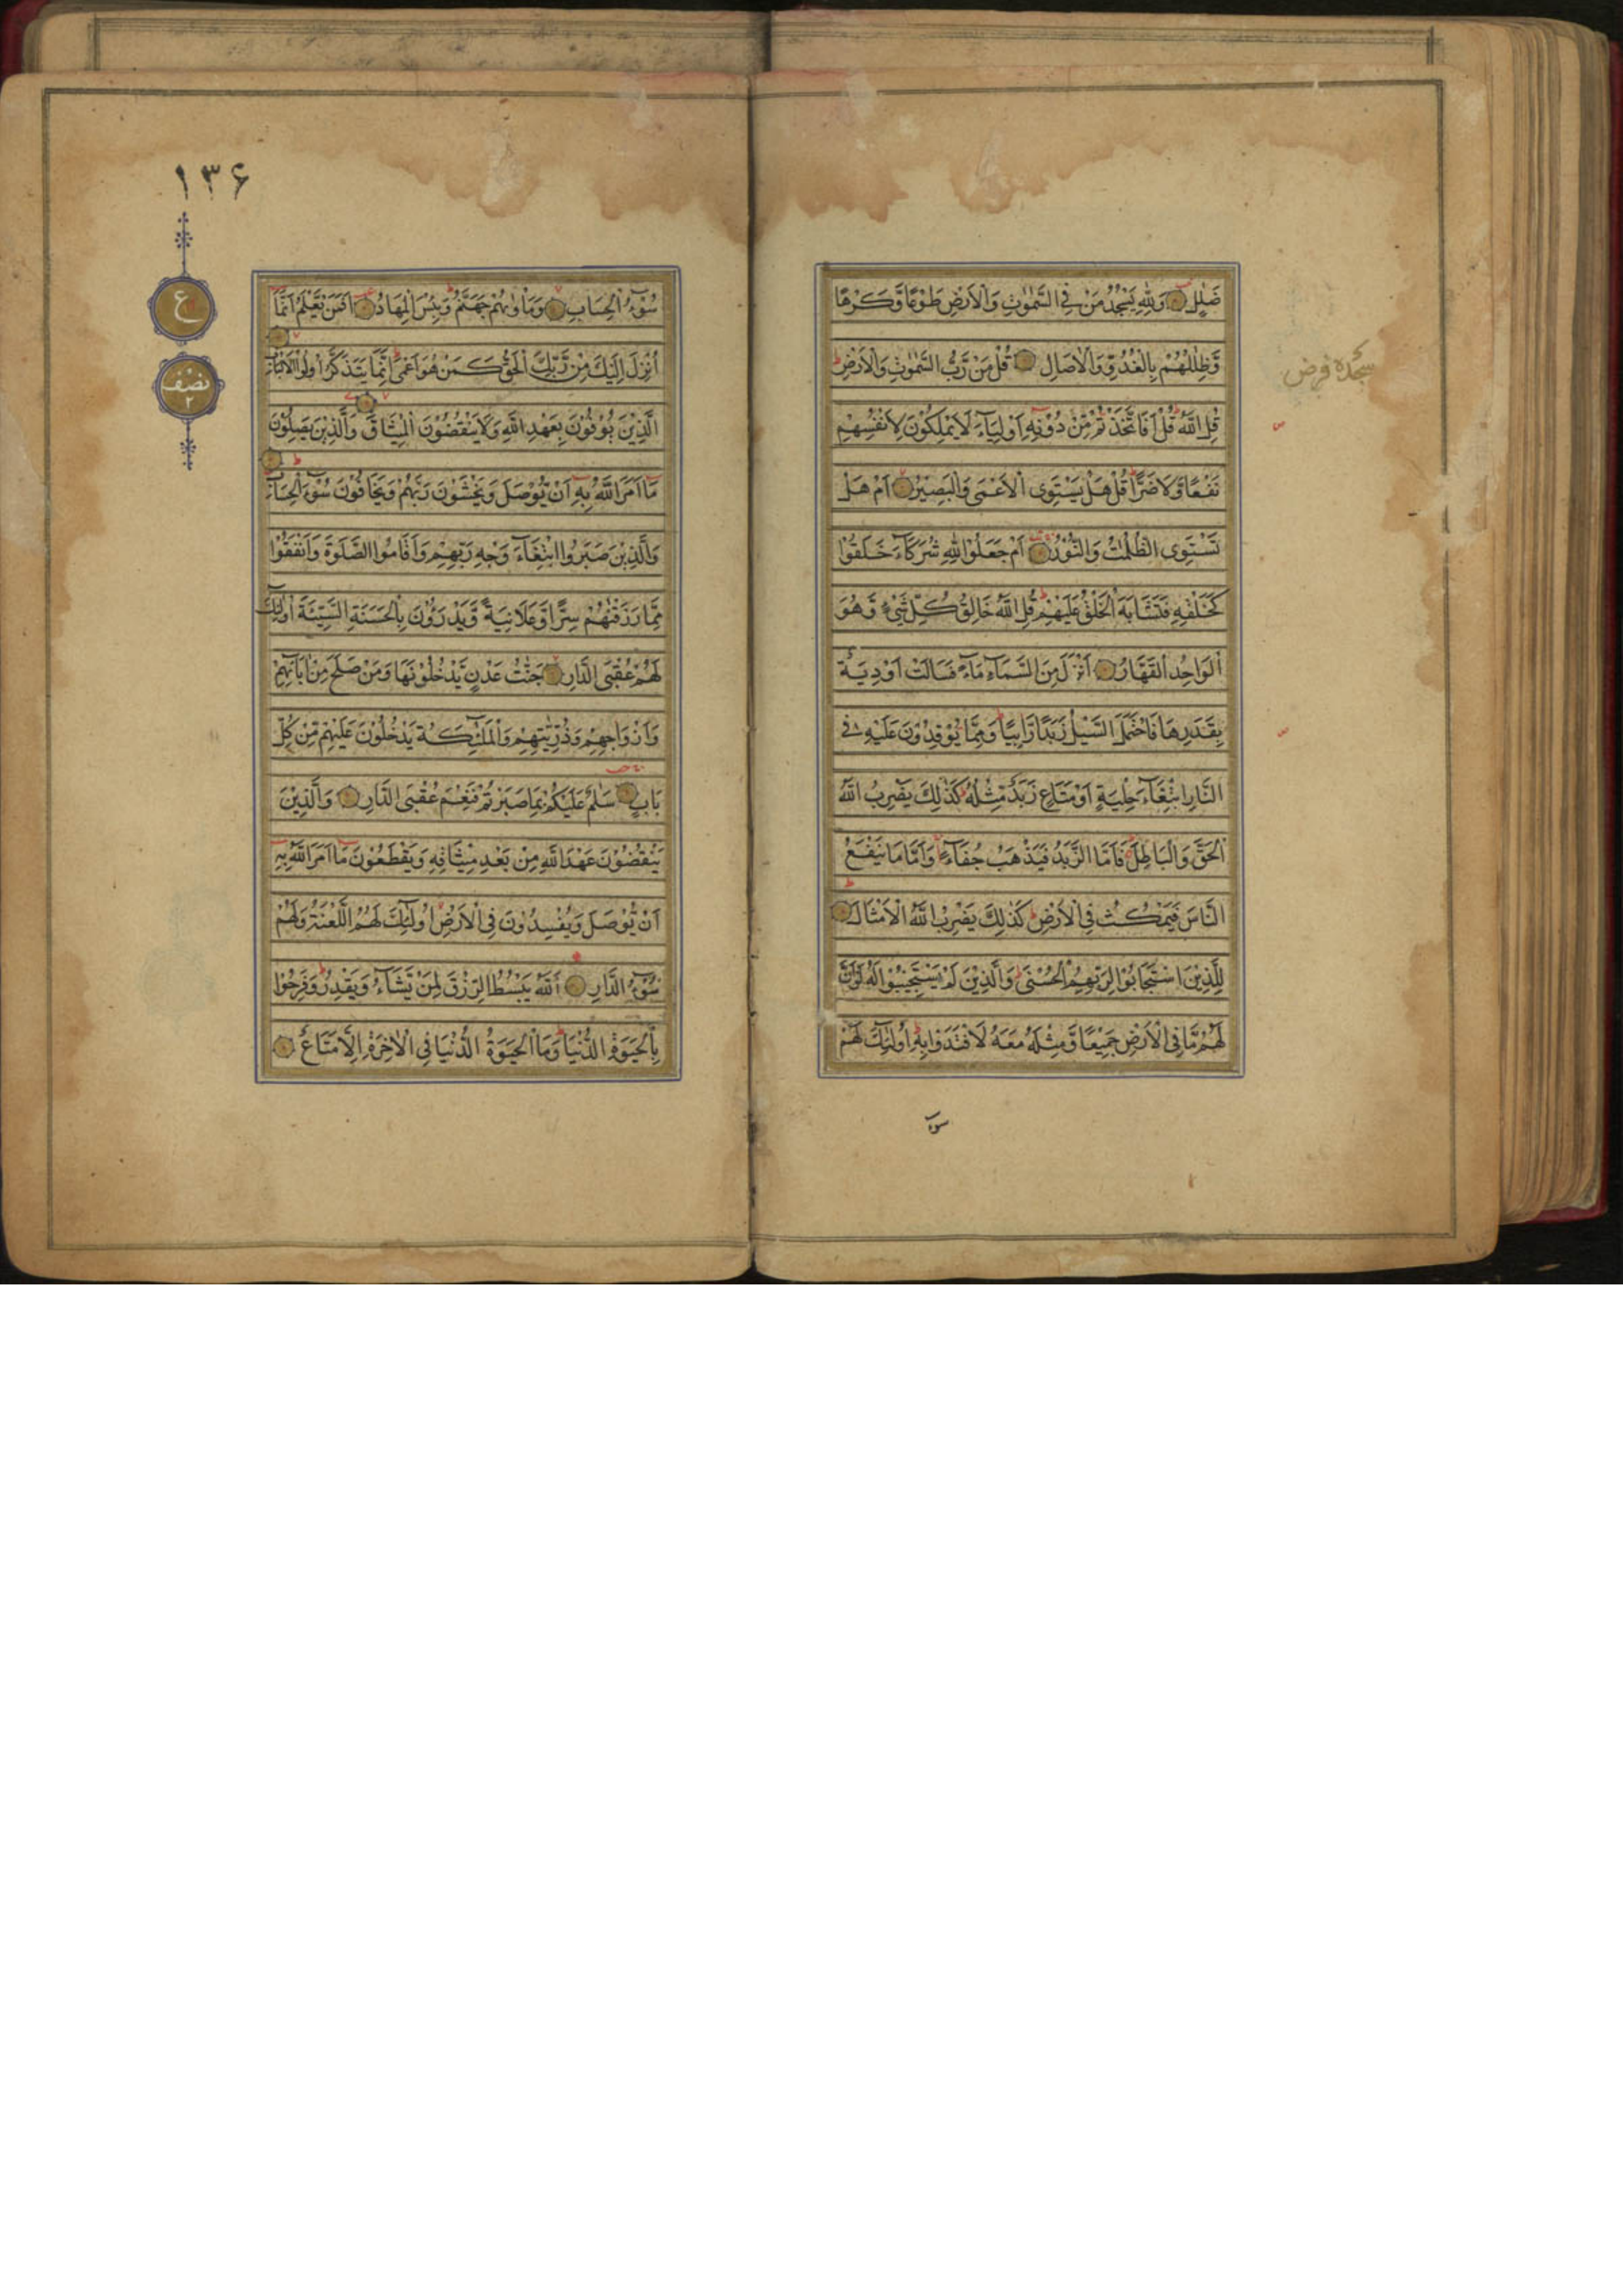 ضَلٰلٍ وَلِلّٰهِ يَسْجُدُ مَنْ فِي السَّمٰوٰتِ وَالْاَرْضِ طَوْعًا وَّكَرْهًا
وَّظِلٰلُهُمْ بِالْغُدُوِّ وَالْاٰصَالِ قُلْ مَنْ رَّبُّ السَّمٰوٰتِ وَالْاَرْضِ
سجده فرض
قُلِ اللّٰهُ قُلْ اَفَاتَّخَذْتُمْ مِّنْ دُوْنِهٖ اَوْلِيَآءَ لَا يَمْلِكُوْنَ لِاَنْفُسِهِمْ
نَفْعًا وَّلَا ضَرًّا قُلْ هَلْ يَسْتَوِى الْاَعْمٰى وَالْبَصِيْرُ اَمْ هَلْ
تَسْتَوِى الظُّلُمٰتُ وَالنُّوْرُ اَمْ جَعَلُوْا لِلّٰهِ شُرَكَآءَ خَلَقُوْا
كَخَلْقِهٖ فَتَشَابَهَ الْخَلْقُ عَلَيْهِمْ قُلِ اللّٰهُ خَالِقُ كُلِّ شَيْءٍ وَّهُوَ
الْوَاحِدُ الْقَهَّارُ اَنْزَلَ مِنَ السَّمَآءِ مَآءً فَسَالَتْ اَوْدِيَةٌ
بِقَدَرِهَا فَاحْتَمَلَ السَّيْلُ زَبَدًا رَّابِيًا وَمِمَّا يُوْقِدُوْنَ عَلَيْهِ فِي
النَّارِ ابْتِغَآءَ حِلْيَةٍ اَوْ مَتَاعٍ زَبَدٌ مِّثْلُهٗ كَذٰلِكَ يَضْرِبُ اللّٰهُ
الْحَقَّ وَالْبَاطِلَ فَاَمَّا الزَّبَدُ فَيَذْهَبُ جُفَآءً وَاَمَّا مَا يَنْفَعُ
النَّاسَ فَيَمْكُثُ فِي الْاَرْضِ كَذٰلِكَ يَضْرِبُ اللّٰهُ الْاَمْثَالَ
لِلَّذِيْنَ اسْتَجَابُوْا لِرَبِّهِمُ الْحُسْنٰى وَالَّذِيْنَ لَمْ يَسْتَجِيْبُوْا لَهٗ لَوْ اَنَّ
لَهُمْ مَّا فِي الْاَرْضِ جَمِيْعًا وَّمِثْلَهٗ مَعَهٗ لَافْتَدَوْا بِهٖ اُولٰٓئِكَ لَهُمْ
سوء
۱۳۶
ع
نصف
۲
سُوْٓءُ الْحِسَابِ وَمَاْوٰىهُمْ جَهَنَّمُ وَبِئْسَ الْمِهَادُ اَفَمَنْ يَّعْلَمُ اَنَّمَآ
اُنْزِلَ اِلَيْكَ مِنْ رَّبِّكَ الْحَقُّ كَمَنْ هُوَ اَعْمٰى اِنَّمَا يَتَذَكَّرُ اُولُوا الْاَلْبَابِ
الَّذِيْنَ يُوْفُوْنَ بِعَهْدِ اللّٰهِ وَلَا يَنْقُضُوْنَ الْمِيْثَاقَ وَالَّذِيْنَ يَصِلُوْنَ
مَآ اَمَرَ اللّٰهُ بِهٖٓ اَنْ يُّوْصَلَ وَيَخْشَوْنَ رَبَّهُمْ وَيَخَافُوْنَ سُوْٓءَ الْحِسَابِ
وَالَّذِيْنَ صَبَرُوا ابْتِغَآءَ وَجْهِ رَبِّهِمْ وَاَقَامُوا الصَّلٰوةَ وَاَنْفَقُوْا
مِمَّا رَزَقْنٰهُمْ سِرًّا وَّعَلَانِيَةً وَّيَدْرَءُوْنَ بِالْحَسَنَةِ السَّيِّئَةَ اُولٰٓئِكَ
لَهُمْ عُقْبَى الدَّارِ جَنّٰتُ عَدْنٍ يَّدْخُلُوْنَهَا وَمَنْ صَلَحَ مِنْ اٰبَآئِهِمْ
وَاَزْوَاجِهِمْ وَذُرِّيّٰتِهِمْ وَالْمَلٰٓئِكَةُ يَدْخُلُوْنَ عَلَيْهِمْ مِّنْ كُلِّ
بَابٍ سَلٰمٌ عَلَيْكُمْ بِمَا صَبَرْتُمْ فَنِعْمَ عُقْبَى الدَّارِ وَالَّذِيْنَ
يَنْقُضُوْنَ عَهْدَ اللّٰهِ مِنْ بَعْدِ مِيْثَاقِهٖ وَيَقْطَعُوْنَ مَآ اَمَرَ اللّٰهُ بِهٖٓ
اَنْ يُّوْصَلَ وَيُفْسِدُوْنَ فِي الْاَرْضِ اُولٰٓئِكَ لَهُمُ اللَّعْنَةُ وَلَهُمْ
سُوْٓءُ الدَّارِ اَللّٰهُ يَبْسُطُ الرِّزْقَ لِمَنْ يَّشَآءُ وَيَقْدِرُ وَفَرِحُوْا
بِالْحَيٰوةِ الدُّنْيَا وَمَا الْحَيٰوةُ الدُّنْيَا فِي الْاٰخِرَةِ اِلَّا مَتَاعٌ